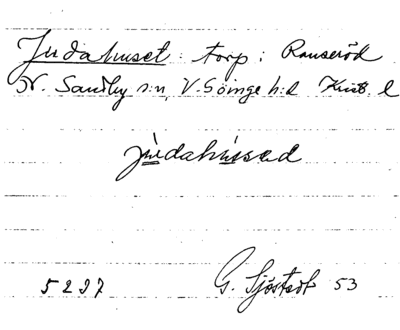 Judahuset torp i Ranseröd
N. Sandby s:n, V. Göinge h:d Krist. l
judahusad
5237 G. Sjöstedt 53